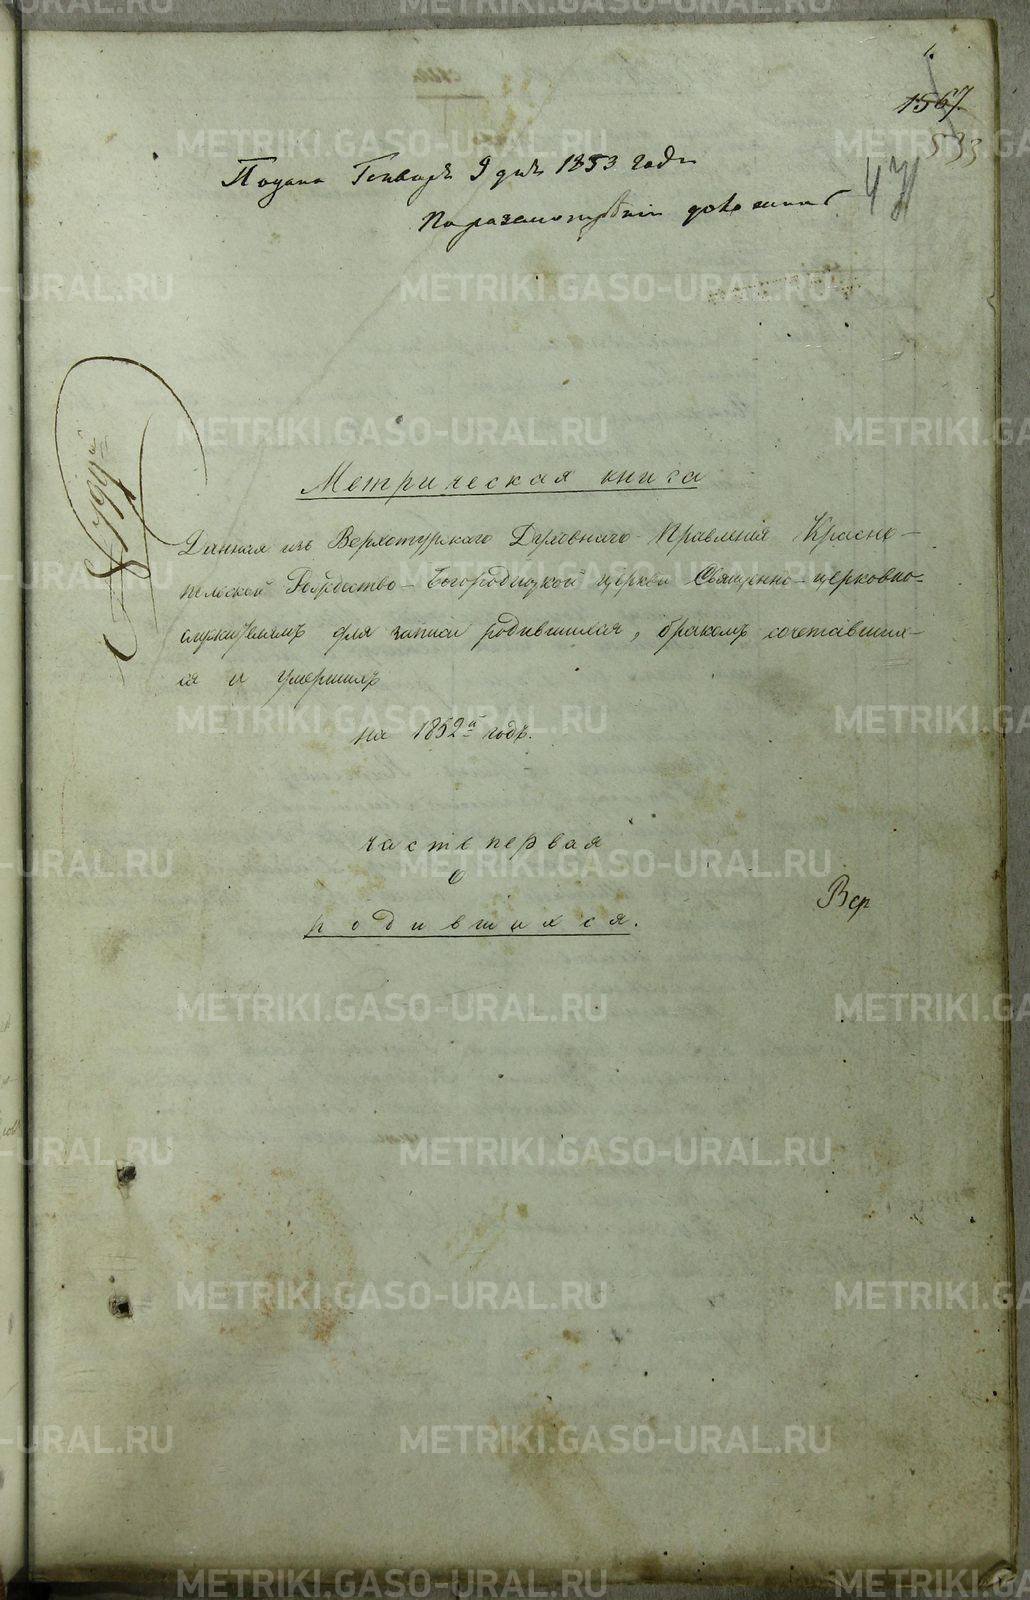 1.
1567.
533
47
Подана Генваря 9 дня 1853 года
По разсмотреніи
№ 799й
Метрическая книга
Данная изъ Верхотурскаго Духовнаго Правленія Красно-
польской Рождество-Богородицкой церкви Священно-церковно-
служителямъ для записи родившихся, бракомъ сочетавших-
ся и умершихъ
на 1852й годъ.
часть первая
о
родившихся.
Вер